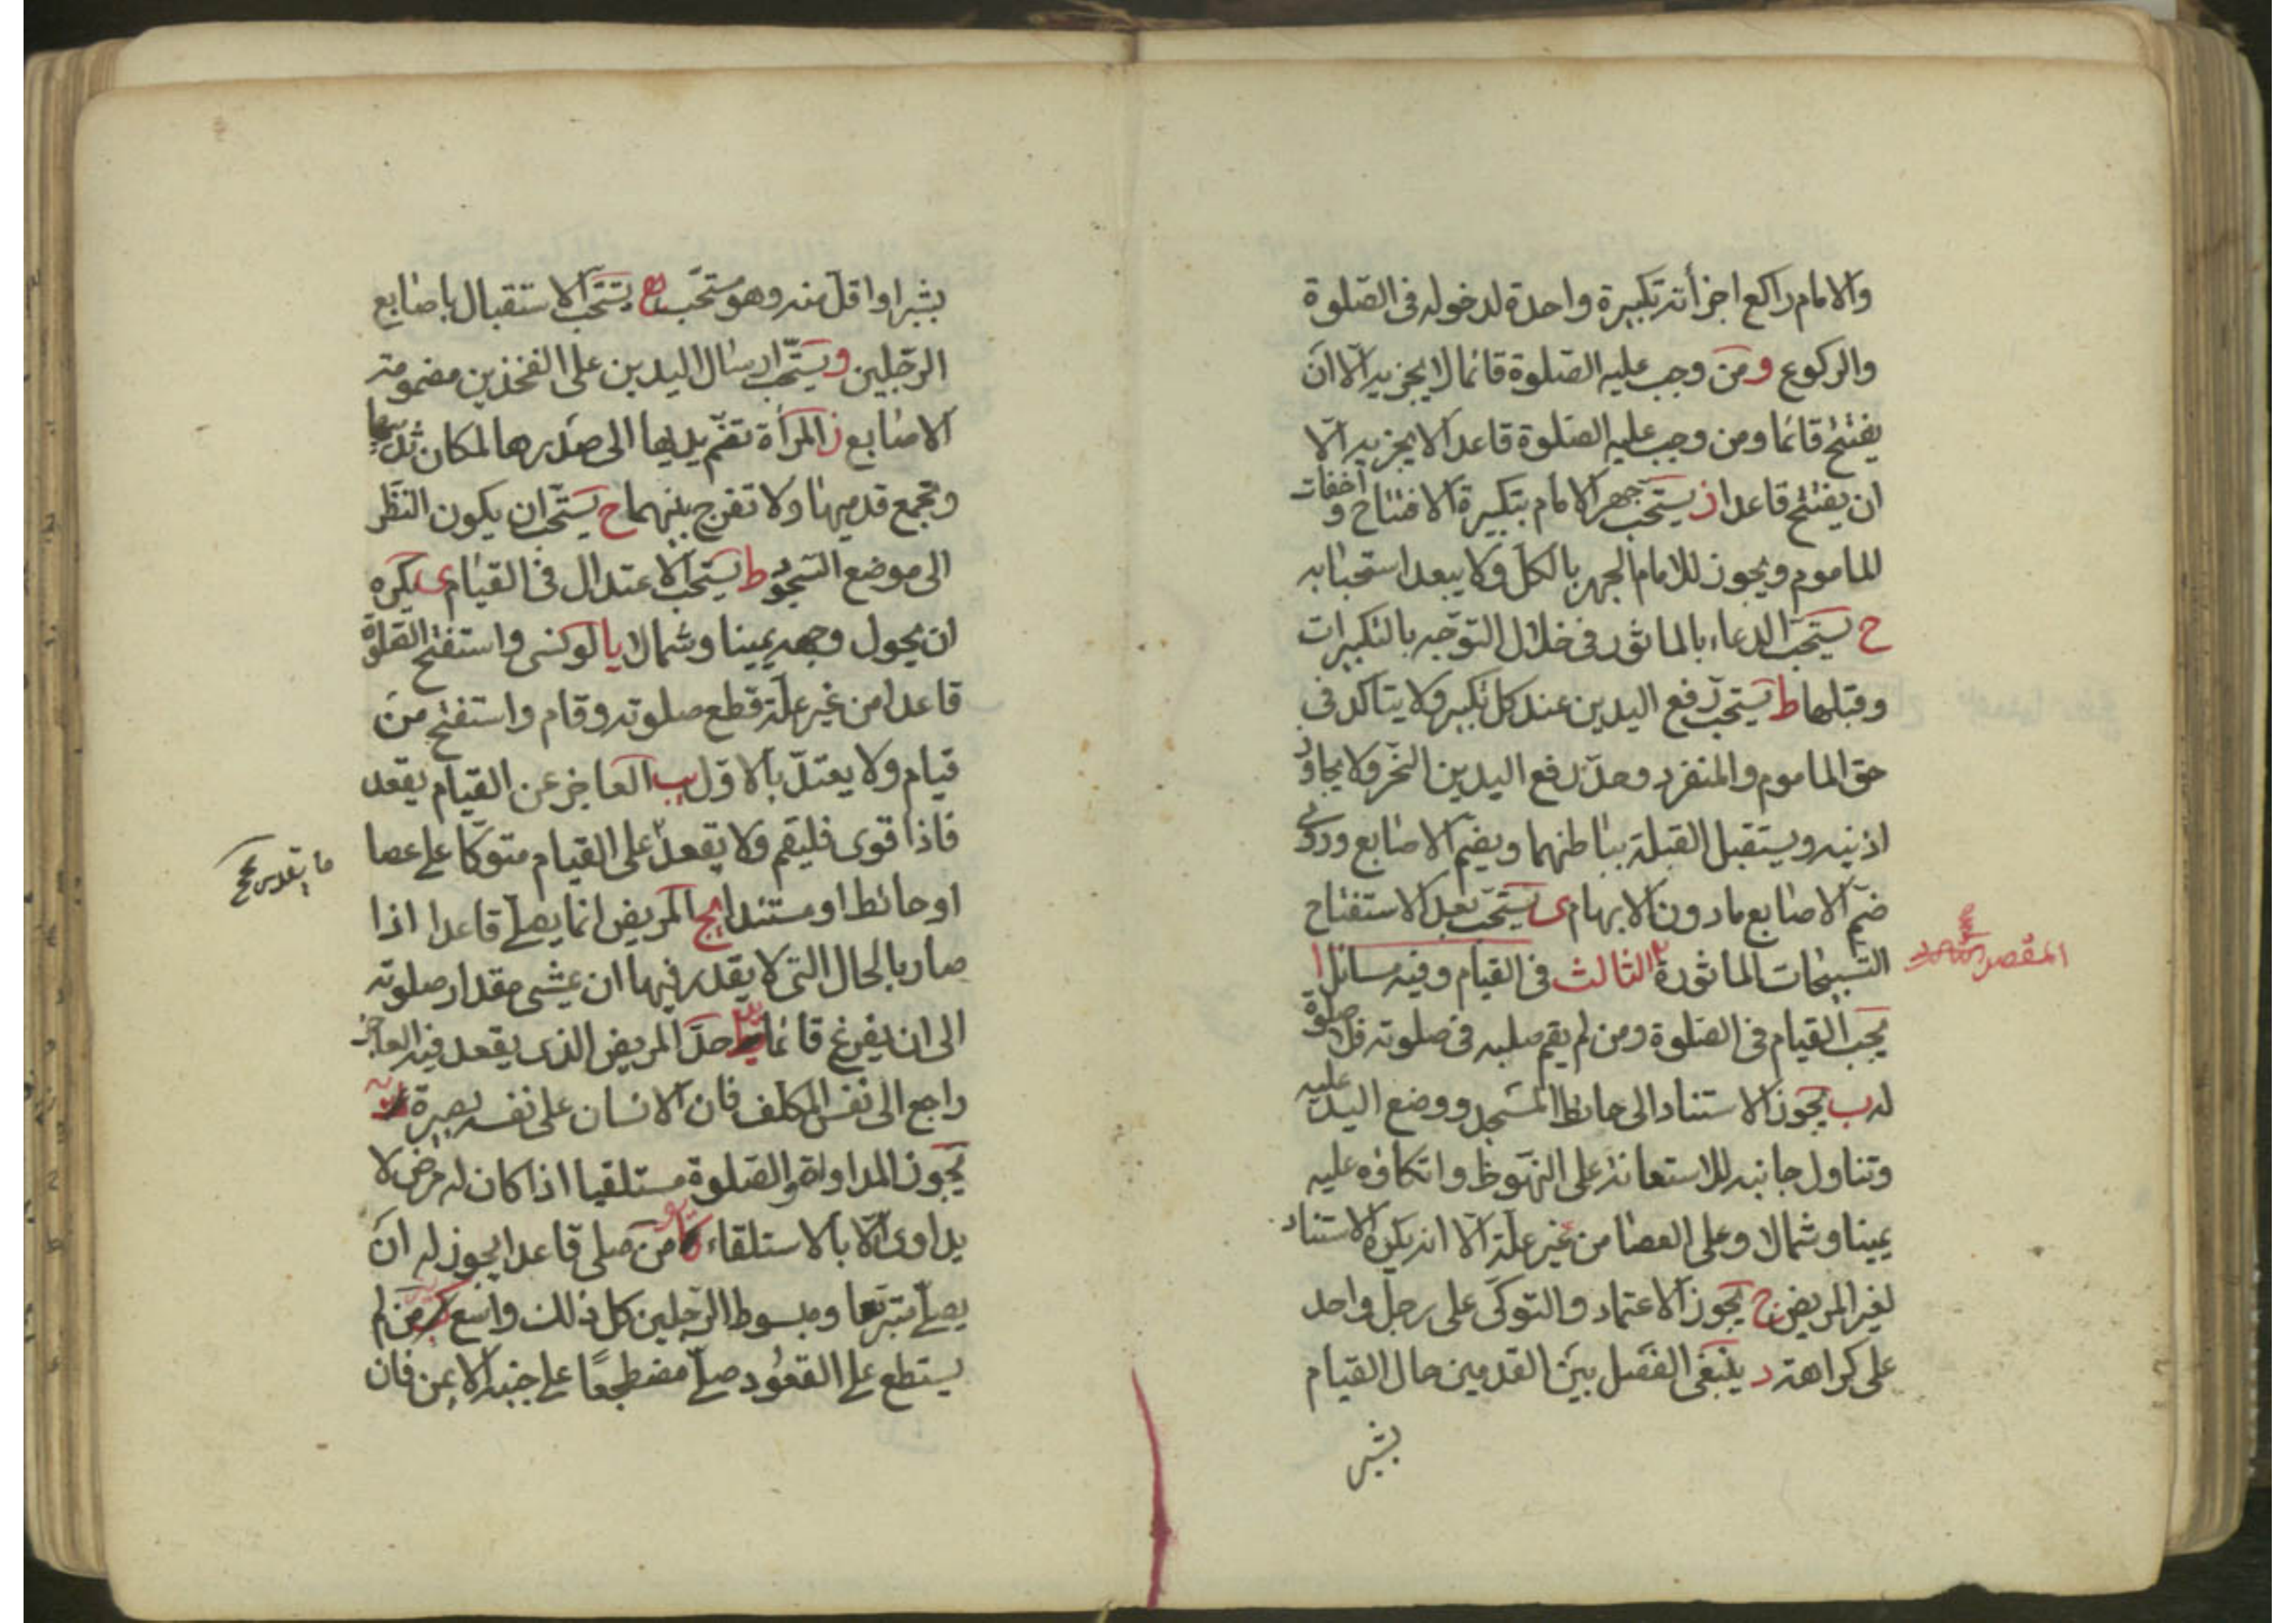 والامام راكع اجزأته تكبيرة واحدة لدخوله فى الصّلوة
والركوع ومن وجب عليه الصّلوة قائما لا يجزيه الّا ان
يفتتح قائما ومن وجب عليه الصّلوة قاعدا لا يجزيه الّا
ان يفتتح قاعدا ز يستحب جهر الامام بتكبيرة الافتتاح و اخفات
للماموم ويجوز للامام الجهر بالكل ولا يبعد استحبابه
ح يستحب الدعاء بالماثور فى خلال التوّجه بالتكبيرات
وقبلها ط يستحب رفع اليدين عند كل تكبير ولا يتاكد فى
حق الماموم والمنفرد وحدّ رفع اليدين النحر ولا يجاوز
اذنيه ويستقبل القبلة بباطنهما ويضم الاصابع وروى
ضم الاصابع مادون الابهام ى يستحب بعد الاستفتاح
التسبيحات الماثورة الثالث فى القيام وفيه مسائل ا
المقصد
يجب القيام فى الصّلوة ومن لم يقم صلبه فى صلوته فلا صلوة
له ب يجوز الاستناد الى حائط المسجد ووضع اليد عليه
وتناول جانبه للاستعانة على النهوظ واتكاؤه عليه
يمينا وشمالا وعلى العصا من غير علة الّا انه يكره الاستناد
لغير المريض ج يجوز الاعتماد والتوكى على رجل واحد
على كراهة د ينبغى الفصل بين القدمين حال القيام
بشبر
بشبر او اقل منه وهو مستحب ه يستحب الاستقبال باصابع
الرجلين و يستحب ارسال اليدين على الفخذين مضمومة
الاصابع ز المرأة تضم يديها الى صدرها لمكان ثدييها
وتجمع قدميها ولا تفرج بينهما ح يستحب ان يكون النظر
الى موضع السّجود ط يستحب الاعتدال فى القيام ى يكره
ان يحول وجهه يمينا وشمالا يا لو نسى واستفتح الصلوة
قاعدا من غير علّة قطع صلوته وقام واستفتح من
قيام ولا يعتدّ بالاوّل يب العاجز عن القيام يقعد
فاذا قوى فليقم ولا يقعد على القيام متوكّا على عصا
ما يقدر صح
او حائط او مستندا يج المريض انما يصلى قاعدا اذا
صار بالحال التى لا يقدر فيها ان يمشى مقدار صلوته
الى ان يفرغ قائما حدّ المريض الذى يقعد فيه العاجز
راجع الى نفس المكلف فان الانسان على نفسه بصيرة
يجوز المداواة والصّلوة مستلقيا اذا كان له مرض لا
يداوى الّا بالاستلقاء من صلى قاعدا يجوز له ان
يصلى متربعا ومبسوط الرّجلين كل ذلك واسع من لم
يستطع على القعود صلى مضطجعًا على جنبه الايمن فان